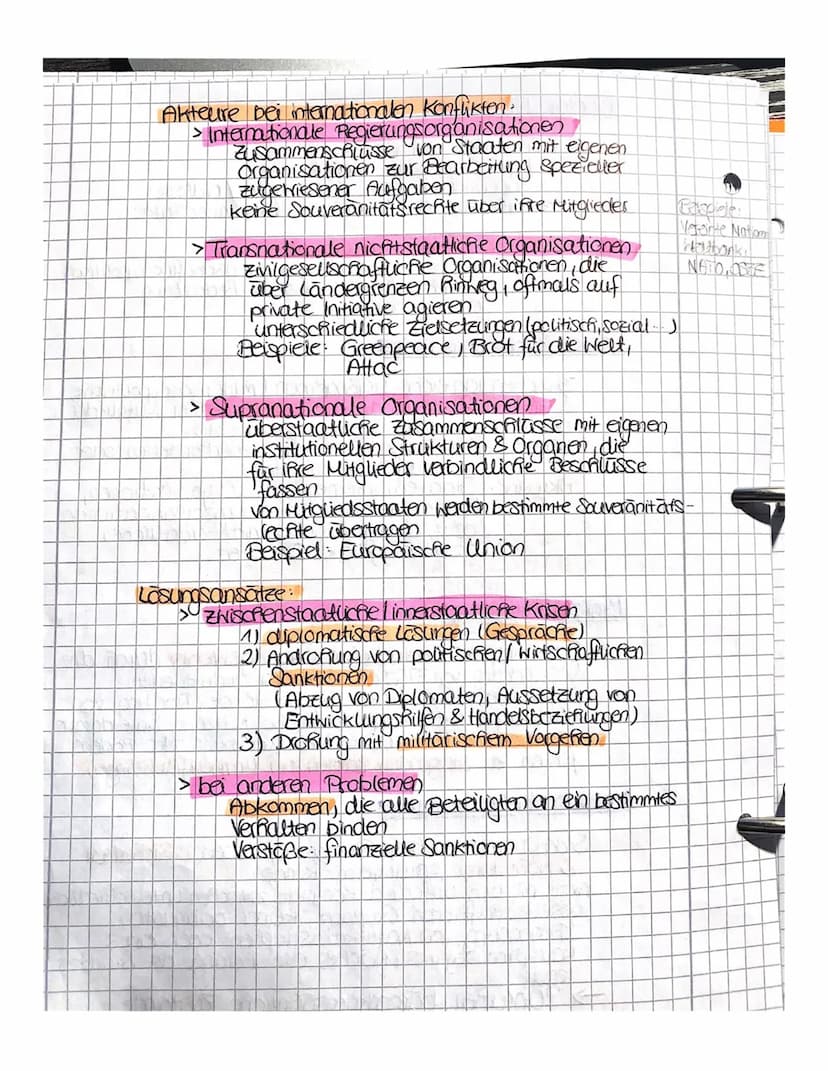 Akteure bei internationalen Konflikten:
> Internationale Regierungsorganisationen
Zusammenschlüsse von Staaten mit eigenen
Organisationen zur Bearbeitung spezieller
zugewiesener Aufgaben
keine Souveränitätsrechte über ihre Mitglieder
Beispiele:
Vereinte Nationen
Weltbank,
NATO, OSZE
> Transnationale nichtstaatliche Organisationen
zivilgesellschaftliche Organisationen, die
über Ländergrenzen hinweg, oftmals auf
private Initiative agieren
unterschiedliche Zielsetzungen (politisch, sozial...)
Beispiele: Greenpeace, Brot für die Welt,
Attac
> Supranationale Organisationen
überstaatliche Zusammenschlüsse mit eigenen
institutionellen Strukturen & Organen, die
für ihre Mitglieder verbindliche Beschlüsse
fassen
von Mitgliedsstaaten werden bestimmte Souveränitäts-
rechte übertragen
Beispiel: Europäische Union
Lösungsansätze:
> zwischenstaatliche / innerstaatliche Krisen
1) diplomatische Lösungen (Gespräche)
2) Androhung von politischen / wirtschaftlichen
Sanktionen
(Abzug von Diplomaten, Aussetzung von
Entwicklungshilfen & Handelsbeziehungen)
3) Drohung mit militärischem Vorgehen
> bei anderen Problemen
Abkommen, die alle Beteiligten an ein bestimmtes
Verhalten binden
Verstöße: finanzielle Sanktionen